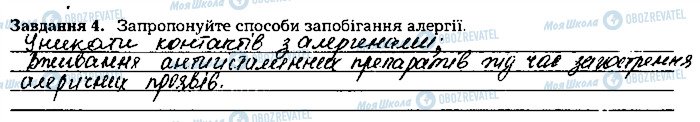 Завдання 4. Запропонуйте способи запобігання алергії.
Уникати контактів з алергенами;
Вживання антигістамінних препаратів під час загострення
алергічних проявів.
МояШкола OBOZREVATEL